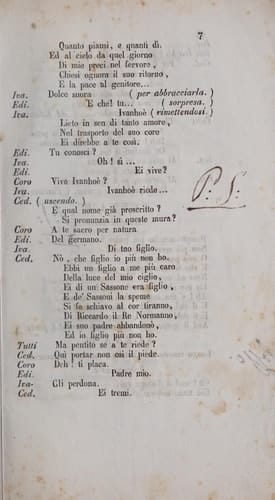 7
Quanto piansi, e quanti dì.
Ed al cielo da quel giorno
Di mie preci nel fervore,
Chiesi ognora il suo ritorno,
E la pace al genitore...
Iva. Dolce suora ( per abbracciarla. )
Edi. E che! tu... ( sorpresa. )
Iva. Ivanhoè ( rimettendosi. )
Lieto in sen di tanto amore,
Nel trasporto del suo core
Ei direbbe a te così.
Edi. Tu conosci?
Iva. Oh! sì ...
Edi. Ei vive?
Coro Vive Ivanhoè?
Iva. Ivanhoè riede...
Ced. ( uscendo. )
E qual nome già proscritto?
Si pronunzia in queste mura?
Coro A te sacro per natura
Edi. Del germano.
Iva. Di tuo figlio.
Ced. Nò, che figlio io più non ho.
Ebbi un figlio a me più caro
Della luce del mio ciglio,
Ei di un Sassone era figlio,
E de' Sassoni la speme
Si fe schiavo al cor tiranno,
Di Riccardo il Re Normanno,
Ei suo padre abbandonò,
Ed io figlio più non ho.
Tutti Ma pentito se a te riede?
Ced. Quì portar non osi il piede.
Coro Deh! ti placa.
Edi. Padre mio.
Iva- Gli perdona.
Ced. Ei tremi.